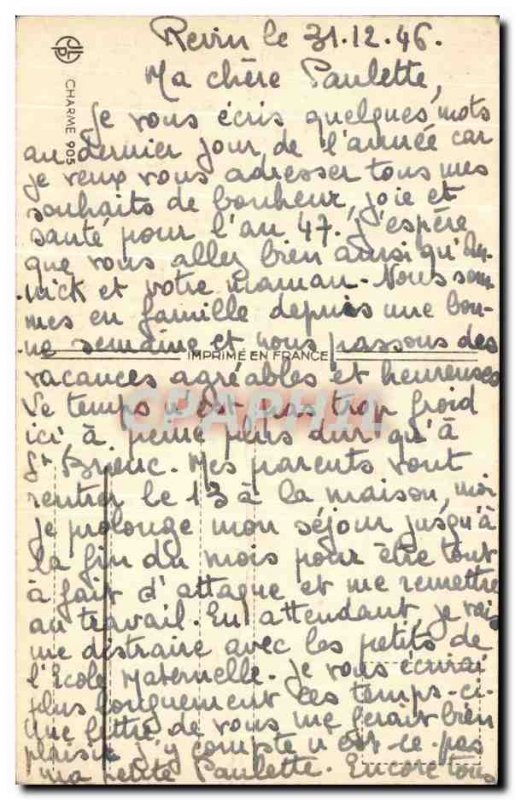 Revin le 31.12.46.
Ma chère Paulette,
CHARME 905
Je vous écris quelques mots
au dernier jour de l'année car
je veux vous adresser tous mes
souhaits de bonheur, joie et
santé pour l'an 47. J'espère
que vous allez bien ainsi qu'An-
nick et votre maman. Nous som-
mes en famille depuis une bon-
ne semaine et nous passons des
IMPRIMÉ EN FRANCE
vacances agréables et heureuses
Le temps n'est pas trop froid
CPAPHIL
ici à peine plus dur qu'à
St Brieuc. Mes parents vont
rentrer le 13 à la maison, moi
je prolonge mon séjour jusqu'à
la fin du mois pour être tout
à fait d'attaque et me remettre
au travail. En attendant, je vais
me distraire avec les petits de
l'Ecole Maternelle. Je vous écrirai
plus longuement ces temps-ci.
Une lettre de vous me ferait bien
plaisir j'y compte n'est-ce pas
ma petite Paulette. Encore tous